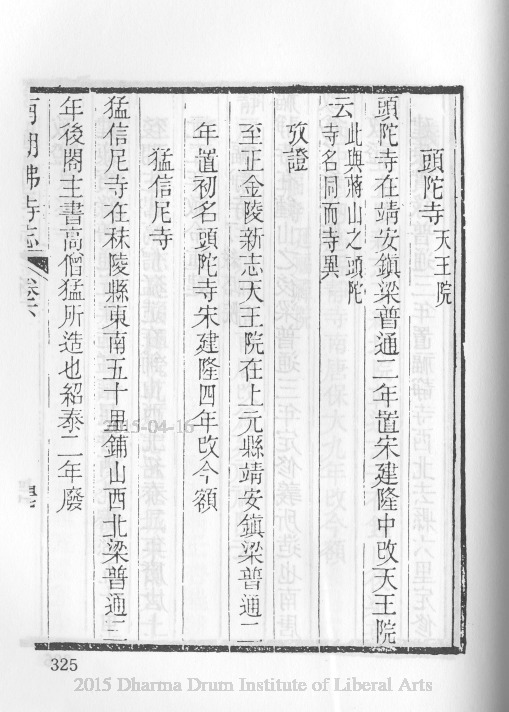 頭陀寺天王院
頭陀寺在靖安鎮梁普通二年置宋建隆中改天王院
云此與蔣山之頭陀
寺名同而寺異
攷證
至正金陵新志天王院在上元縣靖安鎮梁普通二
年置初名頭陀寺宋建隆四年改今額
猛信尼寺
猛信尼寺在秣陵縣東南五十里鋪山西北梁普通三
年後閣主書高僧猛所造也紹泰二年廢
南朝佛寺志 卷六
325
2015-04-16
2015 Dharma Drum Institute of Liberal Arts